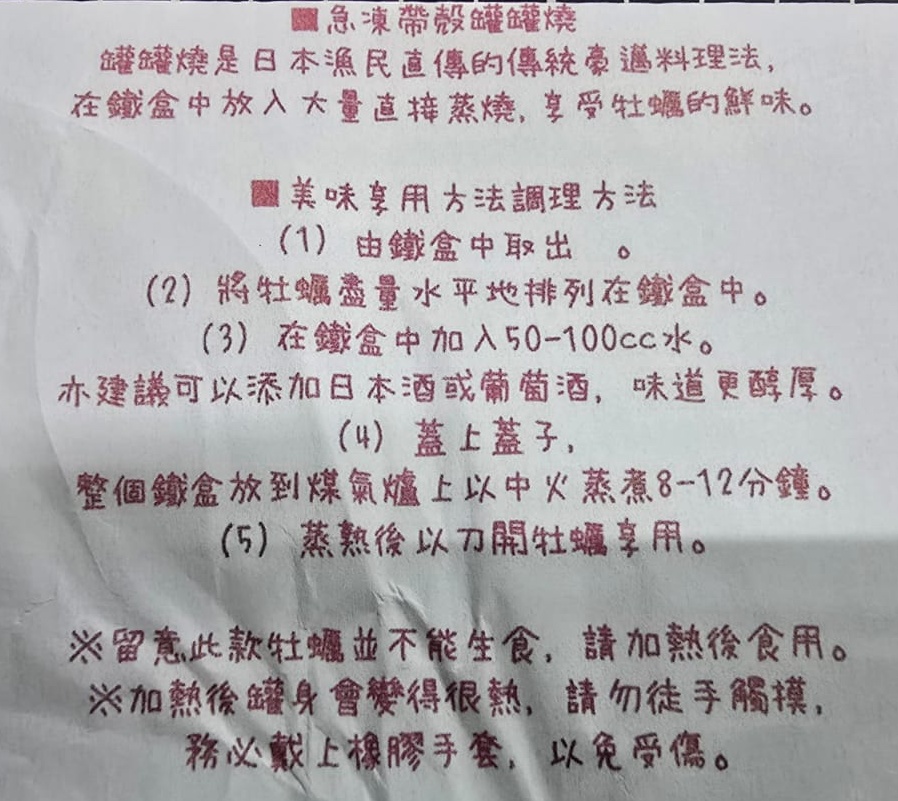 ■急凍帶殼罐罐燒
罐罐燒是日本漁民直傳的傳統豪邁料理法，
在鐵盒中放入大量直接蒸燒，享受牡蠣的鮮味。
■美味享用方法調理方法
(1) 由鐵盒中取出 。
(2) 將牡蠣盡量水平地排列在鐵盒中。
(3) 在鐵盒中加入50-100cc水。
亦建議可以添加日本酒或葡萄酒，味道更醇厚。
(4) 蓋上蓋子，
整個鐵盒放到煤氣爐上以中火蒸煮8-12分鐘。
(5) 蒸熟後以刀開牡蠣享用。
※留意此款牡蠣並不能生食，請加熱後食用。
※加熱後罐身會變得很熱，請勿徒手觸摸，
務必戴上橡膠手套，以免受傷。